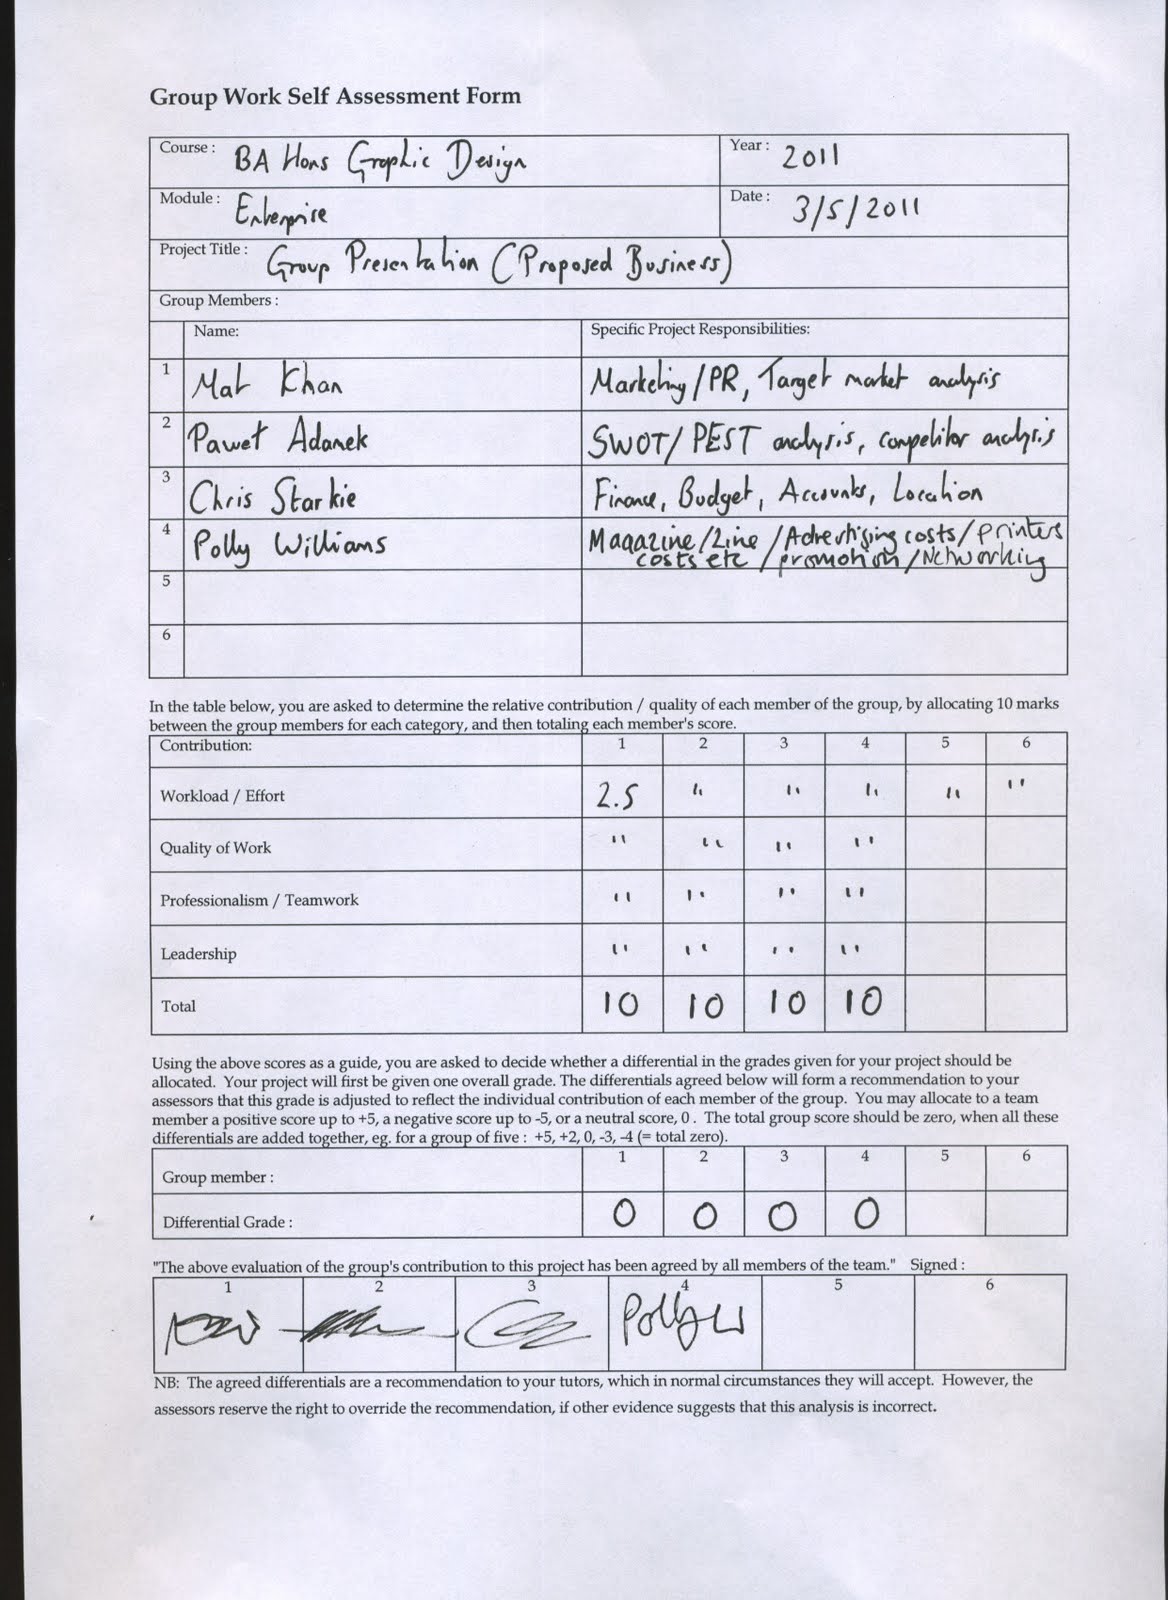 Group Work Self Assessment Form
Course : BA Hons Graphic Design Year : 2011
Module : Enterprise Date : 3/5/2011
Project Title : Group Presentation (Proposed Business)
Group Members :
Name: Specific Project Responsibilities:
1 Mat Khan Marketing/PR, Target market analysis
2 Paweł Adamek SWOT/PEST analysis, competitor analysis
3 Chris Starkie Finance, Budget, Accounts, Location
4 Polly Williams Magazine/Zine/Advertising costs/printers
costs etc/promotion/Networking
5
6
In the table below, you are asked to determine the relative contribution / quality of each member of the group, by allocating 10 marks
between the group members for each category, and then totaling each member's score.
Contribution: 1 2 3 4 5 6
Workload / Effort 2.5 " " " " "
Quality of Work " " " "
Professionalism / Teamwork " " " "
Leadership " " " "
Total 10 10 10 10
Using the above scores as a guide, you are asked to decide whether a differential in the grades given for your project should be
allocated. Your project will first be given one overall grade. The differentials agreed below will form a recommendation to your
assessors that this grade is adjusted to reflect the individual contribution of each member of the group. You may allocate to a team
member a positive score up to +5, a negative score up to -5, or a neutral score, 0 . The total group score should be zero, when all these
differentials are added together, eg. for a group of five : +5, +2, 0, -3, -4 (= total zero).
Group member : 1 2 3 4 5 6
Differential Grade : 0 0 0 0
"The above evaluation of the group's contribution to this project has been agreed by all members of the team." Signed :
1 2 3 4 5 6
NB: The agreed differentials are a recommendation to your tutors, which in normal circumstances they will accept. However, the
assessors reserve the right to override the recommendation, if other evidence suggests that this analysis is incorrect.